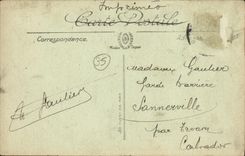 Imprimés
Carte Postale
Correspondance
55
Madame Gautier
Garde Barrière
Sannerville
par Troarn
Calvados
Gautier